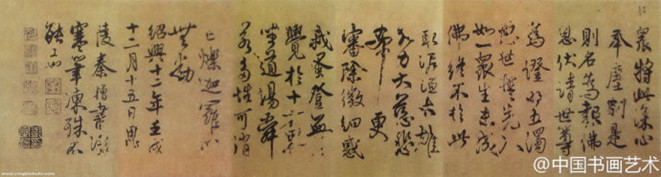 衆將此深心
奉塵刹是
則名為報佛
恩伏請世尊
為證明五濁
惡世誓先入
如一衆生未成
佛終不於此
取泥洹大雄
大力大慈悲
希更
審除微細惑
我蚤登無上
覺於十方界
坐道場舜
若多性可消
亡爍迦羅心
無動
紹興十二年壬戌
十二月十五日
陵秦檜書
寒筆凍殊不
能工也
@中国书画艺术